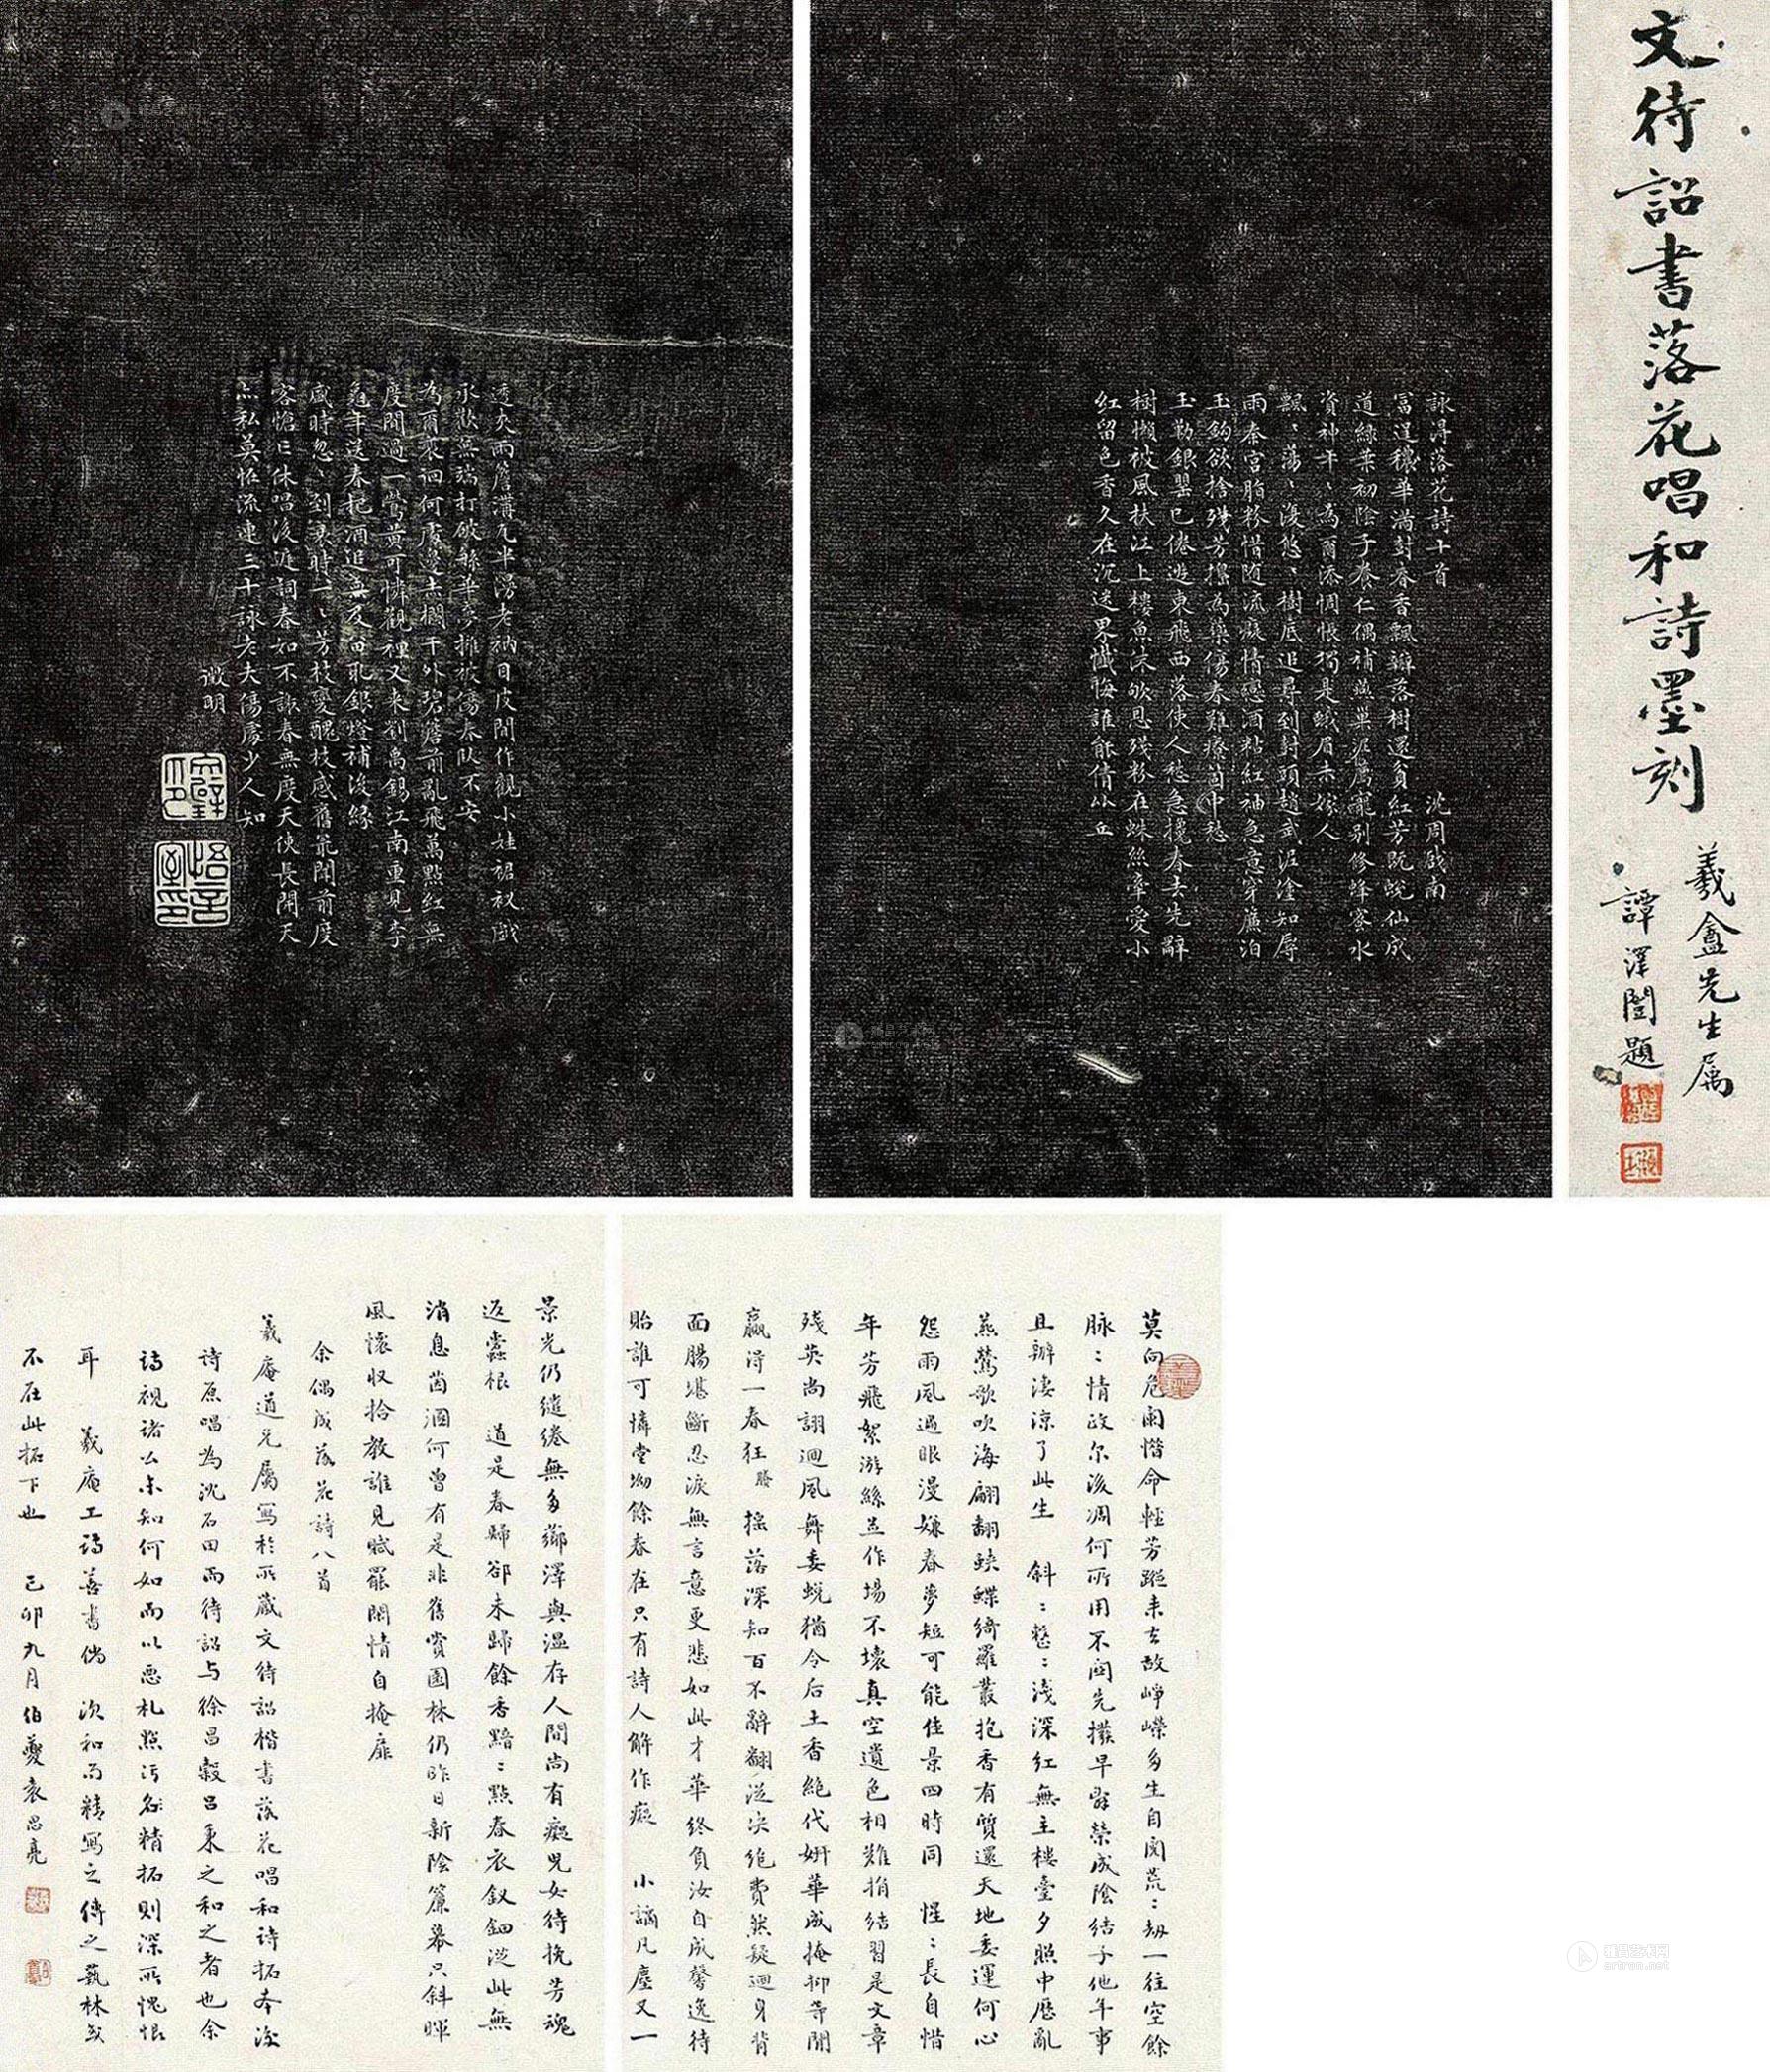 文待詔書落花唱和詩墨刻
羲盦先生属
譚澤闓題
詠得落花詩十首
沈周啟南
富逞穠華滿樹春香飄瓣落樹還貧紅芳既蛻仙成
道綠葉初陰子養仁偶補燕巢泥薦寵別修蜂蜜水
資神年、為爾添惆悵獨是蛾眉未嫁人
飄、蕩、復悠、樹底追尋到樹頭趙武泥塗知辱
雨秦宮脂粉惜隨流癡情戀酒粘紅袖急意穿簾泊
玉鉤欲拾殘芳搗為藥傷春難療箇中愁
玉勒銀罌已倦遊東飛西落使人愁急攙春去先辭
樹懶被風扶江上樓魚沫吹恩殘粉在蛛絲牽愛小
紅留色香久在沉迷界懺悔誰能倩比丘
透夾雨簷溝瓦半漫老衲目皮閒作觀小娃裙衩戲
承歡無端打破繁華夢擁被傷春臥不安
為爾衰迴何處邊赤欄干外碧簷前亂飛萬點紅無
度閒過一鶯黃可憐觀裡又來劉禹錫江南重見李
龜年送春把酒追無及留取銀燈補後緣
盛時忽、到衰時一、芳枝變醜枝感舊最關前度
客愴亡休唱後庭詞春如不謝春無度天使長開天
亦私莫怪流連三十詠老夫傷處少人知
徵明
莫向危闌惜命輕芳蹤未去故崢嶸多生自閱荒：劫一往空餘
脉：情政尔後凋何所用不關先撥早辭榮成陰結子他年事
且辦淒涼了此生 斜：整：淺深紅無主樓臺夕照中歷亂
燕鶯歌吹海翩翻蛺蝶綺羅叢抱香有質還天地委運何心
怨雨風過眼漫嫌春夢短可能佳景四時同 惺：長自惜
年芳飛絮游絲並作場不壞真空遺色相難捐結習是文章
殘英尚詡迴風舞委蛻猶令后土香絶代妍華成掩抑等閒
贏得一春狂 搖落深知百不辭翻從决絶費然疑迴身背
面腸堪斷忍淚無言意更悲如此才華終負汝自成馨逸待
貽誰可憐堂坳餘春在只有詩人解作癡 小謫凡塵又一
景光仍繾綣無多薌澤與溫存人間尚有癡兒女待挽芳魂
返蠹根 道是春歸卻未歸餘香黯：點春衣釵鈿從此無
消息茵溷何曾有是非舊賞園林仍昨日新陰簾幕只斜暉
風懷收拾教誰見賦罷閒情自掩扉
余偶成落花詩八首
羲庵道兄屬寫於所藏文待詔楷書落花唱和詩拓本後
詩原唱為沈石田而待詔与徐昌穀吕秉之和之者也余
詩視諸公未知何如而以惡札點污名精拓則深所愧恨
耳 羲庵工詩善書倘 次和而精寫之傳之藝林或
不在此拓下也 己卯九月伯夔袁思亮